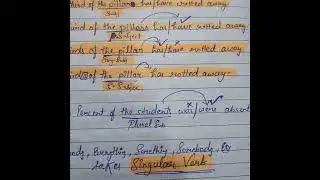 kind of the pillars has/have rotted away
Sub
kind of the pillars has/have rotted away
Subject
kinds of the pillar has/have rotted away
Sing Sub
kinds of the pillar has rotted away.
S. Subject
Percent of the students was/were absent
Plural Sub
body, Everything, Something, Somebody,
takes Singular Verb